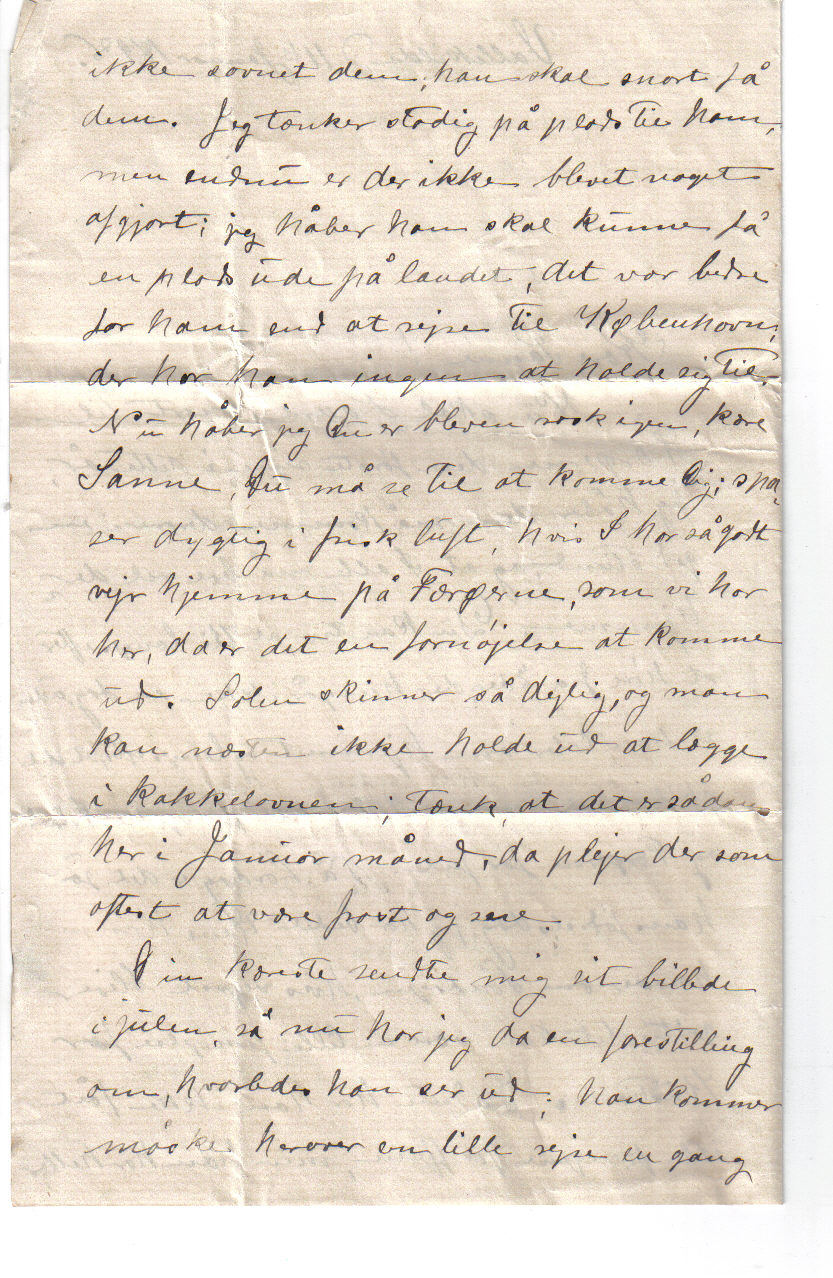 ikke savnet dem, han skal snart få
dem. Jeg tænker stadig på plads til ham,
men endnu er der ikke blevet noget
afgjort; jeg håber han skal kunne få
en plads ude på landet, det var bedre
for ham end at rejse til København,
der har han ingen at holde sig til.
Nu håber jeg Du er bleven rask igen, kære
Sanne, Du må se til at komme Dig; spa-
ser dygtig i frisk luft, hvis I har så godt
vejr hjemme på Færøerne, som vi har
her, da er det en fornøjelse at komme
ud. Solen skinner så dejlig, og man
kan næsten ikke holde ud at lægge
i kakkelovnen; tænk, at det er sådan
her i Januar måned, da plejer der som
oftest at være frost og sne.
Din kæreste sendte mig sit billede
i julen, så nu har jeg da en forestilling
om, hvorledes han ser ud; han kommer
måske herover en lille rejse en gang